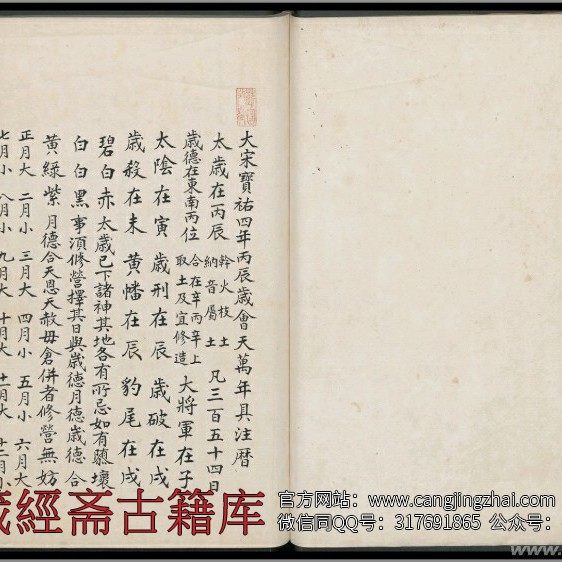 大宋寶祐四年丙辰歲會天萬年具注曆
太歲在丙辰 幹火枝土 納音屬土 凡三百五十四日
歲德在東南丙位 合在辛丙辛上 取土及宜修造 大將軍在子
太陰在寅 歲刑在辰 歲破在戌
歲殺在未 黄幡在辰 豹尾在戌
碧白赤 太歲已下諸神其地各有所忌如有隳壞
白白黑 事須修營擇其日與歲德月德歲德合
黄綠紫 月德合天恩天赦毋倉併者修營無妨
正月大 二月小 三月大 四月小 五月小 六月大
七月小 八月小 九月大 十月大 十一月大 十二月小
藏經斋古籍库
官方网站：www.cangjingzhai.com
微信同QQ号：317691865 公众号：
www.